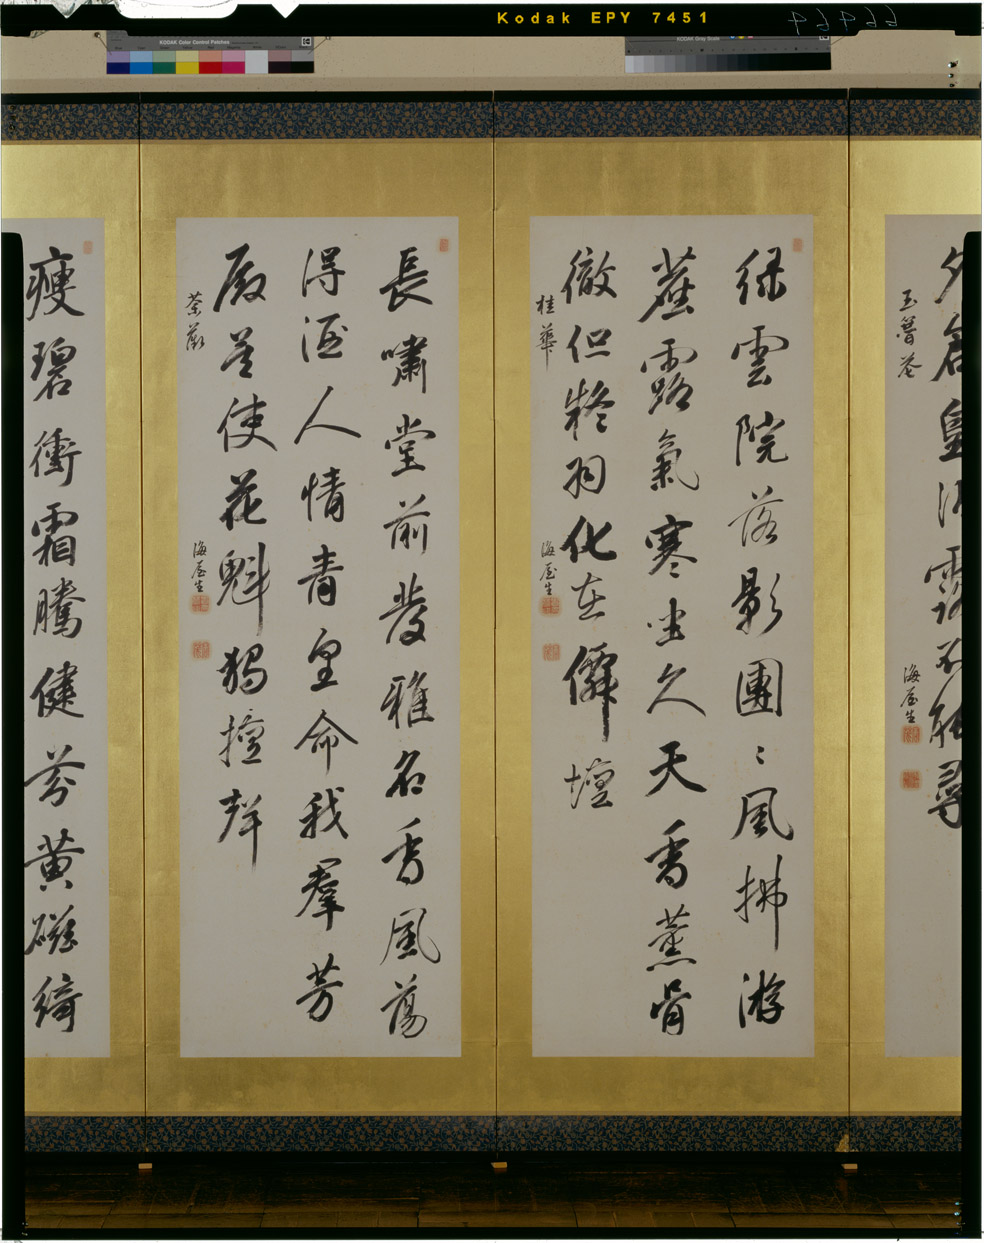 Kodak EPY 7451
66464
KODAK Color Control Patches
KODAK Gray Scale
玉簪花
海屋生
緑雲院落影團〻風拂游
蘆露氣寒坐久天香薰骨
徹但粧羽化在僊壇
桂華
海屋生
長嘯堂前發雅名香風蕩
得酒人情青皇命我羣芳
殿羞使花魁獨擅聲
荼蘼
海屋生
瘦碧衝霜騰健芬黄磁綺